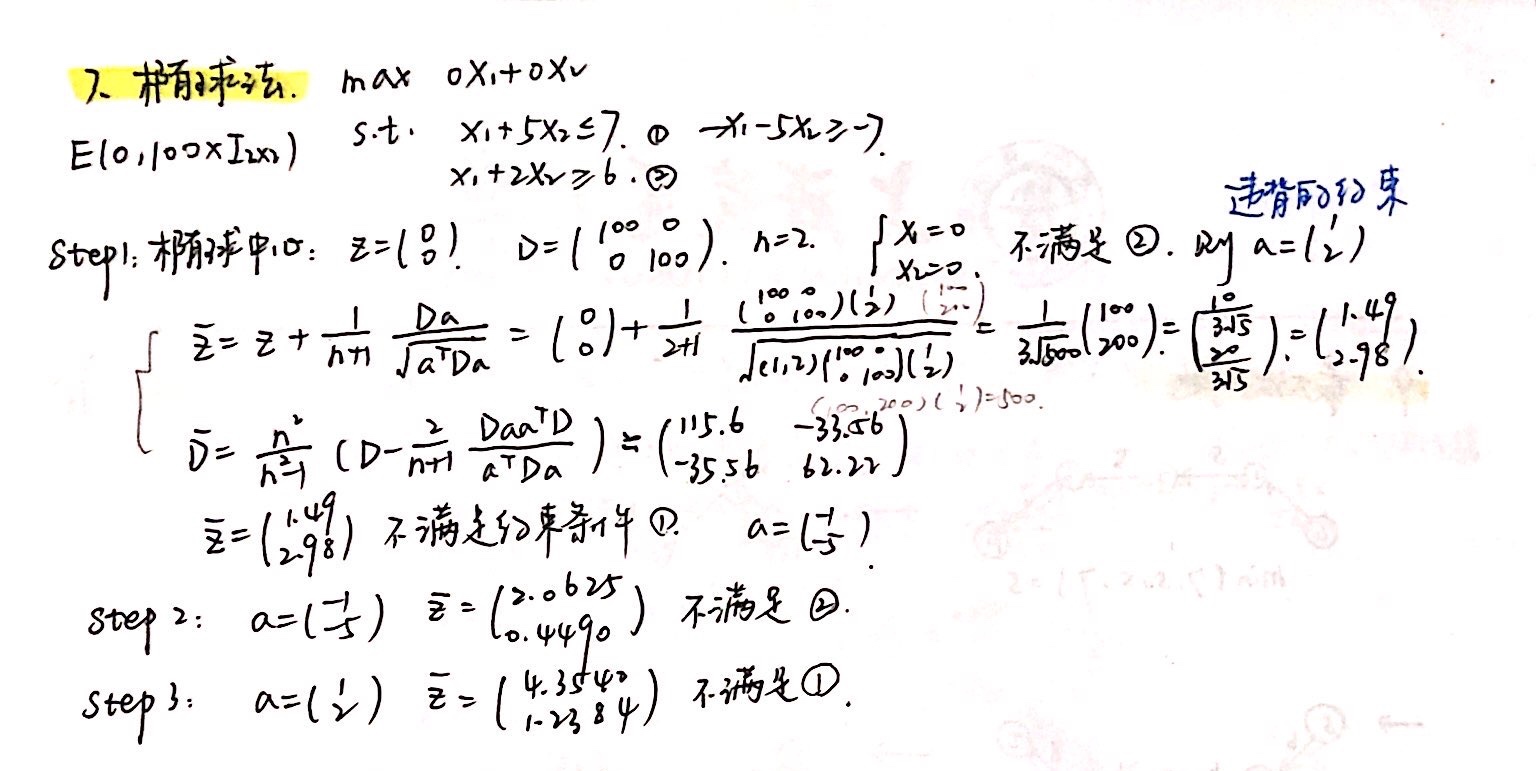 7. 椭球法. max 0X₁+0X₂
E(0,100×I₂ₓ₂) s.t. X₁+5X₂≤7. ① -X₁-5X₂≥-7.
X₁+2X₂≥6. ②
违背的约束
Step1: 椭球中心: z=(0 0). D=(100 0 0 100). n=2. {X₁=0 X₂=0. 不满足②. 则 a=(1 2)
z̄ = z + 1/(n+1) Da/√(aᵀDa) = (0 0) + 1/(2+1) (100 0 0 100)(1 2)/√((1,2)(100 0 0 100)(1 2)) (100 200) = 1/(3√500) (100 200). = (10/(3√5) 20/(3√5)). = (1.49 2.98).
(100,200)(1 2)=500.
D̄ = n²/(n²-1) (D - 2/(n+1) DaaᵀD/(aᵀDa)) ≒ (115.6 -33.56 -35.56 62.22)
z̄=(1.49 2.98) 不满足约束条件①. a=(-1 -5).
Step 2: a=(-1 -5) z̄=(2.0625 0.4490) 不满足②.
Step 3: a=(1 2) z̄=(4.3540 1.2384) 不满足①.